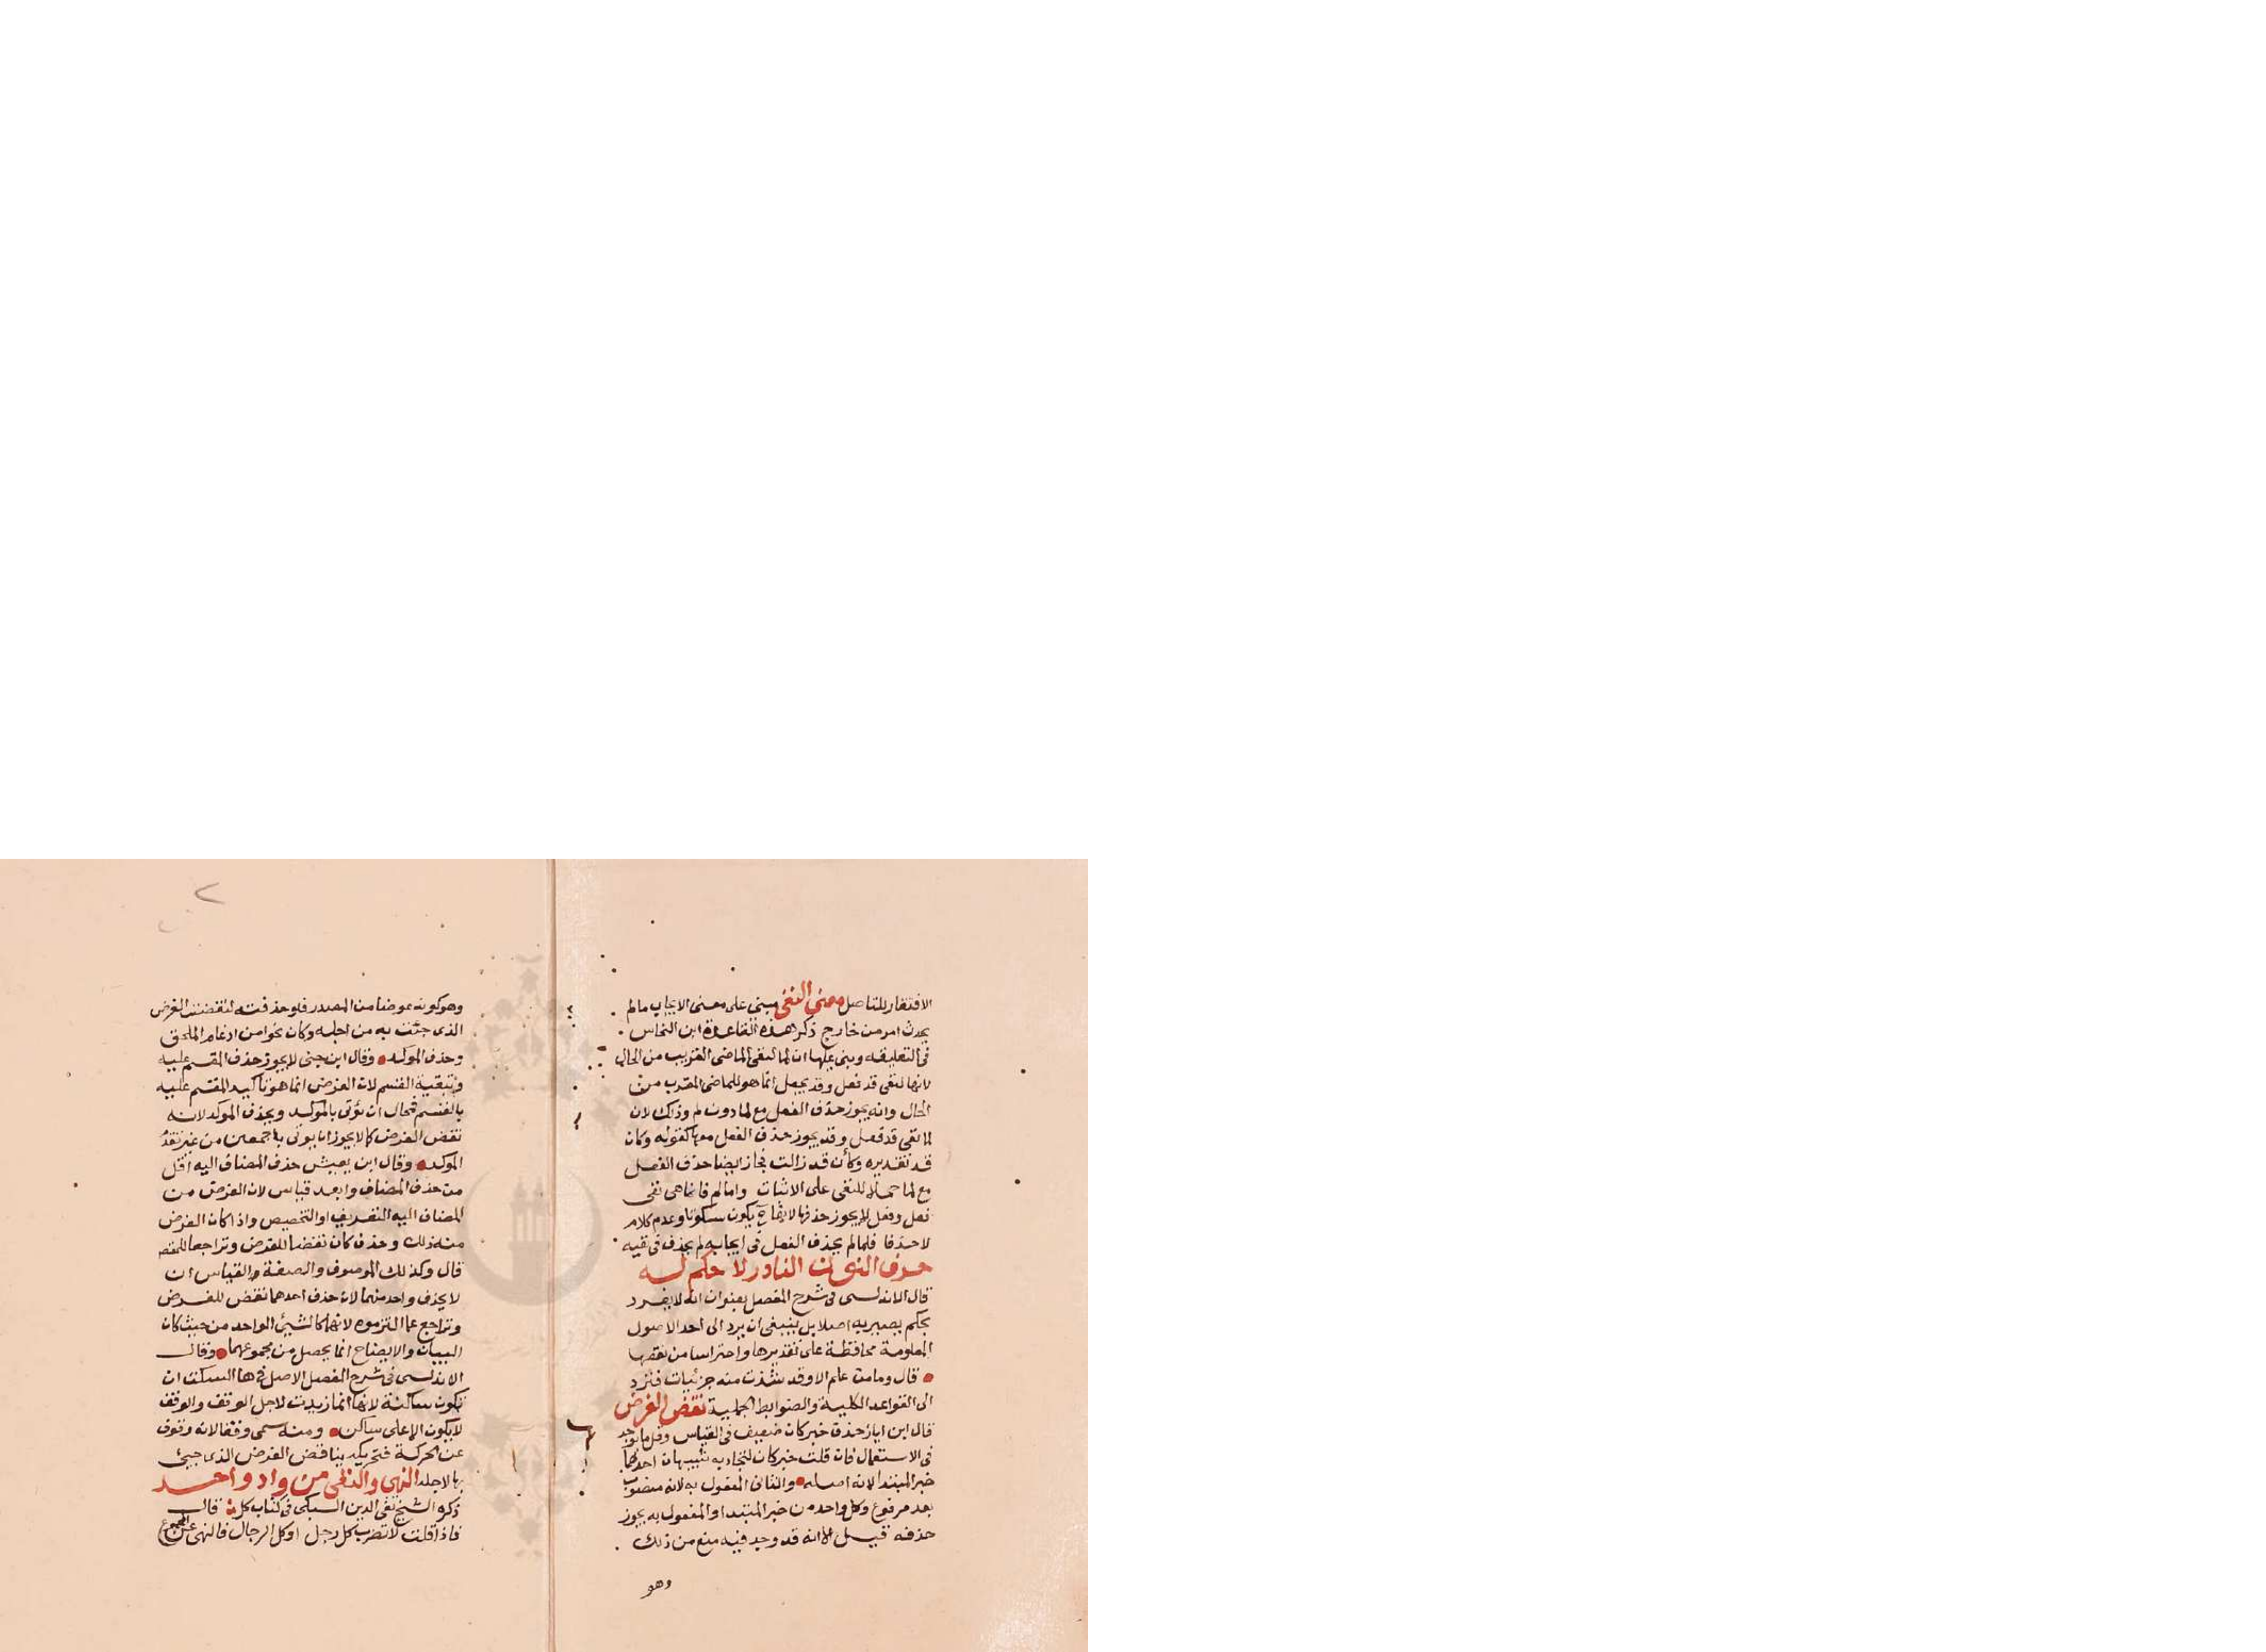 الافتقار للتاصل معنى النفى مبنى على معنى الايجاب مالم
يحدث امر من خارج ذكر هذه القاعدة ابن النحاس
فى التعليقه وبنى عليها ان لما لنفى الماضى القريب من الحال
لانها لنفى قد فعل وقد يجعل انما هو للماضى المقرب من
الحال وانه يجوز حذف الفعل مع لما دون لم وذلك لان
لما نفى قد فعل وقد يجوز حذف الفعل معها كقوله وكان
قد تقديره وكأن قد زالت فجاز ايضا حذف الفعل
مع لما حملا للنفى على الاثبات واما لم فانما هى نفى
فعل وفعل لا يجوز حذفها لانها ح يكون سكوتا وعدم كلام
لاحذفا فلما لم يحذف الفعل فى ايجابه لم يحذف فى نفيه
حرف النون النادر لا حكم له
قال الاندلسى فى شرح المفصل بعنوان انه لا يفرد
بحكم يصير به اصلا بل ينبغى ان يرد الى احد الاصول
المعلومة محافظة على تقديرها واحتراسا من نقضها
قال وما من علم الا وقد شذت منه جزئيات فترد
الى القواعد الكلية والضوابط الجملية نقض الغرض
قال ابن اياز حذف خبر كان ضعيف فى القياس وقل ما يوجد
فى الاستعمال فان قلت خبر كان لتجاذبه شبيهان احدهما
خبر المبتدا لانه اصله والثانى المفعول به لانه منصوب
بعد مرفوع وكل واحد من خبر المبتدا والمفعول به يجوز
حذفه قيل الا انه قد وجد فيه منع من ذلك
وهو
وهو كونه عوضا من المصدر فلو حذفته لنقضت الغرض
الذى جئت به من اجله وكان نحوا من ادغام الملحق
وحذف الموكد وقال ابن جنى لا يجوز حذف المقسم عليه
وتبقية القسم لان الغرض انما هو تاكيد المقسم عليه
بالقسم فمحال ان يؤتى بالموكد ويحذف الموكد لانه
نقض الغرض كما لا يجوز ان يوتى باجمعين من غير تقدم
الموكد وقال ابن يعيش حذف المضاف اليه اقل
من حذف المضاف وابعد قياس لان الغرض من
المضاف اليه التعريف او التخصيص واذا كان الغرض
منه ذلك وحذف كان نقضا للغرض وتراجعا للمقص
قال وكذلك الموصوف والصفة والقياس ان
لا يحذف واحد منهما لان حذف احدهما نقض للغرض
وتراجع عما التزموه لانهما كالشيئ الواحد من حيث كان
البيان والايضاح انما يحصل من مجموعهما وقال
الاندلسى فى شرح المفصل الاصل فى ها السكت ان
تكون ساكنة لانها انما زيدت لاجل الوقف والوقف
لا يكون الا على ساكن ومنه سمى وقفا لانه وقوف
عن الحركة فتحريكه يناقض الغرض الذى جيئ
بها لاجله النهى والنفى من واد واحد
ذكره الشيخ تقى الدين السبكى فى كتاب كل قال
فاذا قلت لا تضرب كل رجل او كل الرجال فالنهى عن المجموع